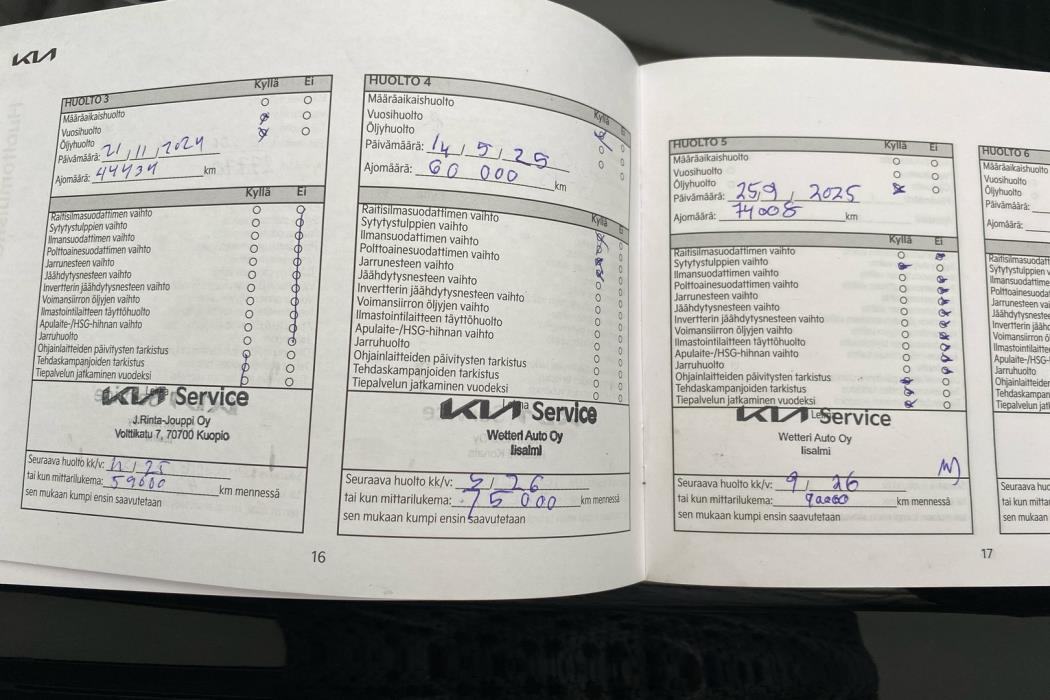 KIA
HUOLTO 3 Kyllä Ei
Määräaikaishuolto
Vuosihuolto
Öljyhuolto
Päivämäärä: 21 / 11 / 2024
Ajomäärä: 44434 km
Kyllä Ei
Raitisilmasuodattimen vaihto
Sytytystulppien vaihto
Ilmansuodattimen vaihto
Polttoainesuodattimen vaihto
Jarrunesteen vaihto
Jäähdytysnesteen vaihto
Invertterin jäähdytysnesteen vaihto
Voimansiirron öljyjen vaihto
Ilmastointilaitteen täyttöhuolto
Apulaite-/HSG-hihnan vaihto
Jarruhuolto
Ohjainlaitteiden päivitysten tarkistus
Tehdaskampanjoiden tarkistus
Tiepalvelun jatkaminen vuodeksi
KIA Service
J.Rinta-Jouppi Oy
Volttikatu 7, 70700 Kuopio
Seuraava huolto kk/v: 11 / 25
tai kun mittarilukema: 59000 km mennessä
sen mukaan kumpi ensin saavutetaan
HUOLTO 4
Kyllä Ei
Määräaikaishuolto
Vuosihuolto
Öljyhuolto
Päivämäärä: 14 / 5 / 25
Ajomäärä: 60 000 km
Kyllä Ei
Raitisilmasuodattimen vaihto
Sytytystulppien vaihto
Ilmansuodattimen vaihto
Polttoainesuodattimen vaihto
Jarrunesteen vaihto
Jäähdytysnesteen vaihto
Invertterin jäähdytysnesteen vaihto
Voimansiirron öljyjen vaihto
Ilmastointilaitteen täyttöhuolto
Apulaite-/HSG-hihnan vaihto
Jarruhuolto
Ohjainlaitteiden päivitysten tarkistus
Tehdaskampanjoiden tarkistus
Tiepalvelun jatkaminen vuodeksi
KIA Service
Wetteri Auto Oy
Iisalmi
Seuraava huolto kk/v: 5 / 26
tai kun mittarilukema: 75 000 km mennessä
sen mukaan kumpi ensin saavutetaan
16
HUOLTO 5 Kyllä Ei
Määräaikaishuolto
Vuosihuolto
Öljyhuolto
Päivämäärä: 25,9 / 2025
Ajomäärä: 74008 km
Kyllä Ei
Raitisilmasuodattimen vaihto
Sytytystulppien vaihto
Ilmansuodattimen vaihto
Polttoainesuodattimen vaihto
Jarrunesteen vaihto
Jäähdytysnesteen vaihto
Invertterin jäähdytysnesteen vaihto
Voimansiirron öljyjen vaihto
Ilmastointilaitteen täyttöhuolto
Apulaite-/HSG-hihnan vaihto
Jarruhuolto
Ohjainlaitteiden päivitysten tarkistus
Tehdaskampanjoiden tarkistus
Tiepalvelun jatkaminen vuodeksi
KIA Service
Wetteri Auto Oy
Iisalmi
Seuraava huolto kk/v: 9 / 26
tai kun mittarilukema: km mennessä
sen mukaan kumpi ensin saavutetaan
17
HUOLTO 6
Määräaikaishuolto
Vuosihuolto
Öljyhuolto
Päivämäärä:
Ajomäärä:
Raitisilmasuodatt
Sytytystulppien v
Ilmansuodattimen
Polttoainesuodat
Jarrunesteen vai
Jäähdytysnestee
Invertterin jäähd
Voimansiirron ö
Ilmastointilaittee
Apulaite-/HSG-
Jarruhuolto
Ohjainlaitteiden
Tehdaskampan
Tiepalvelun jat
Seuraava huo
tai kun mittar
sen mukaan